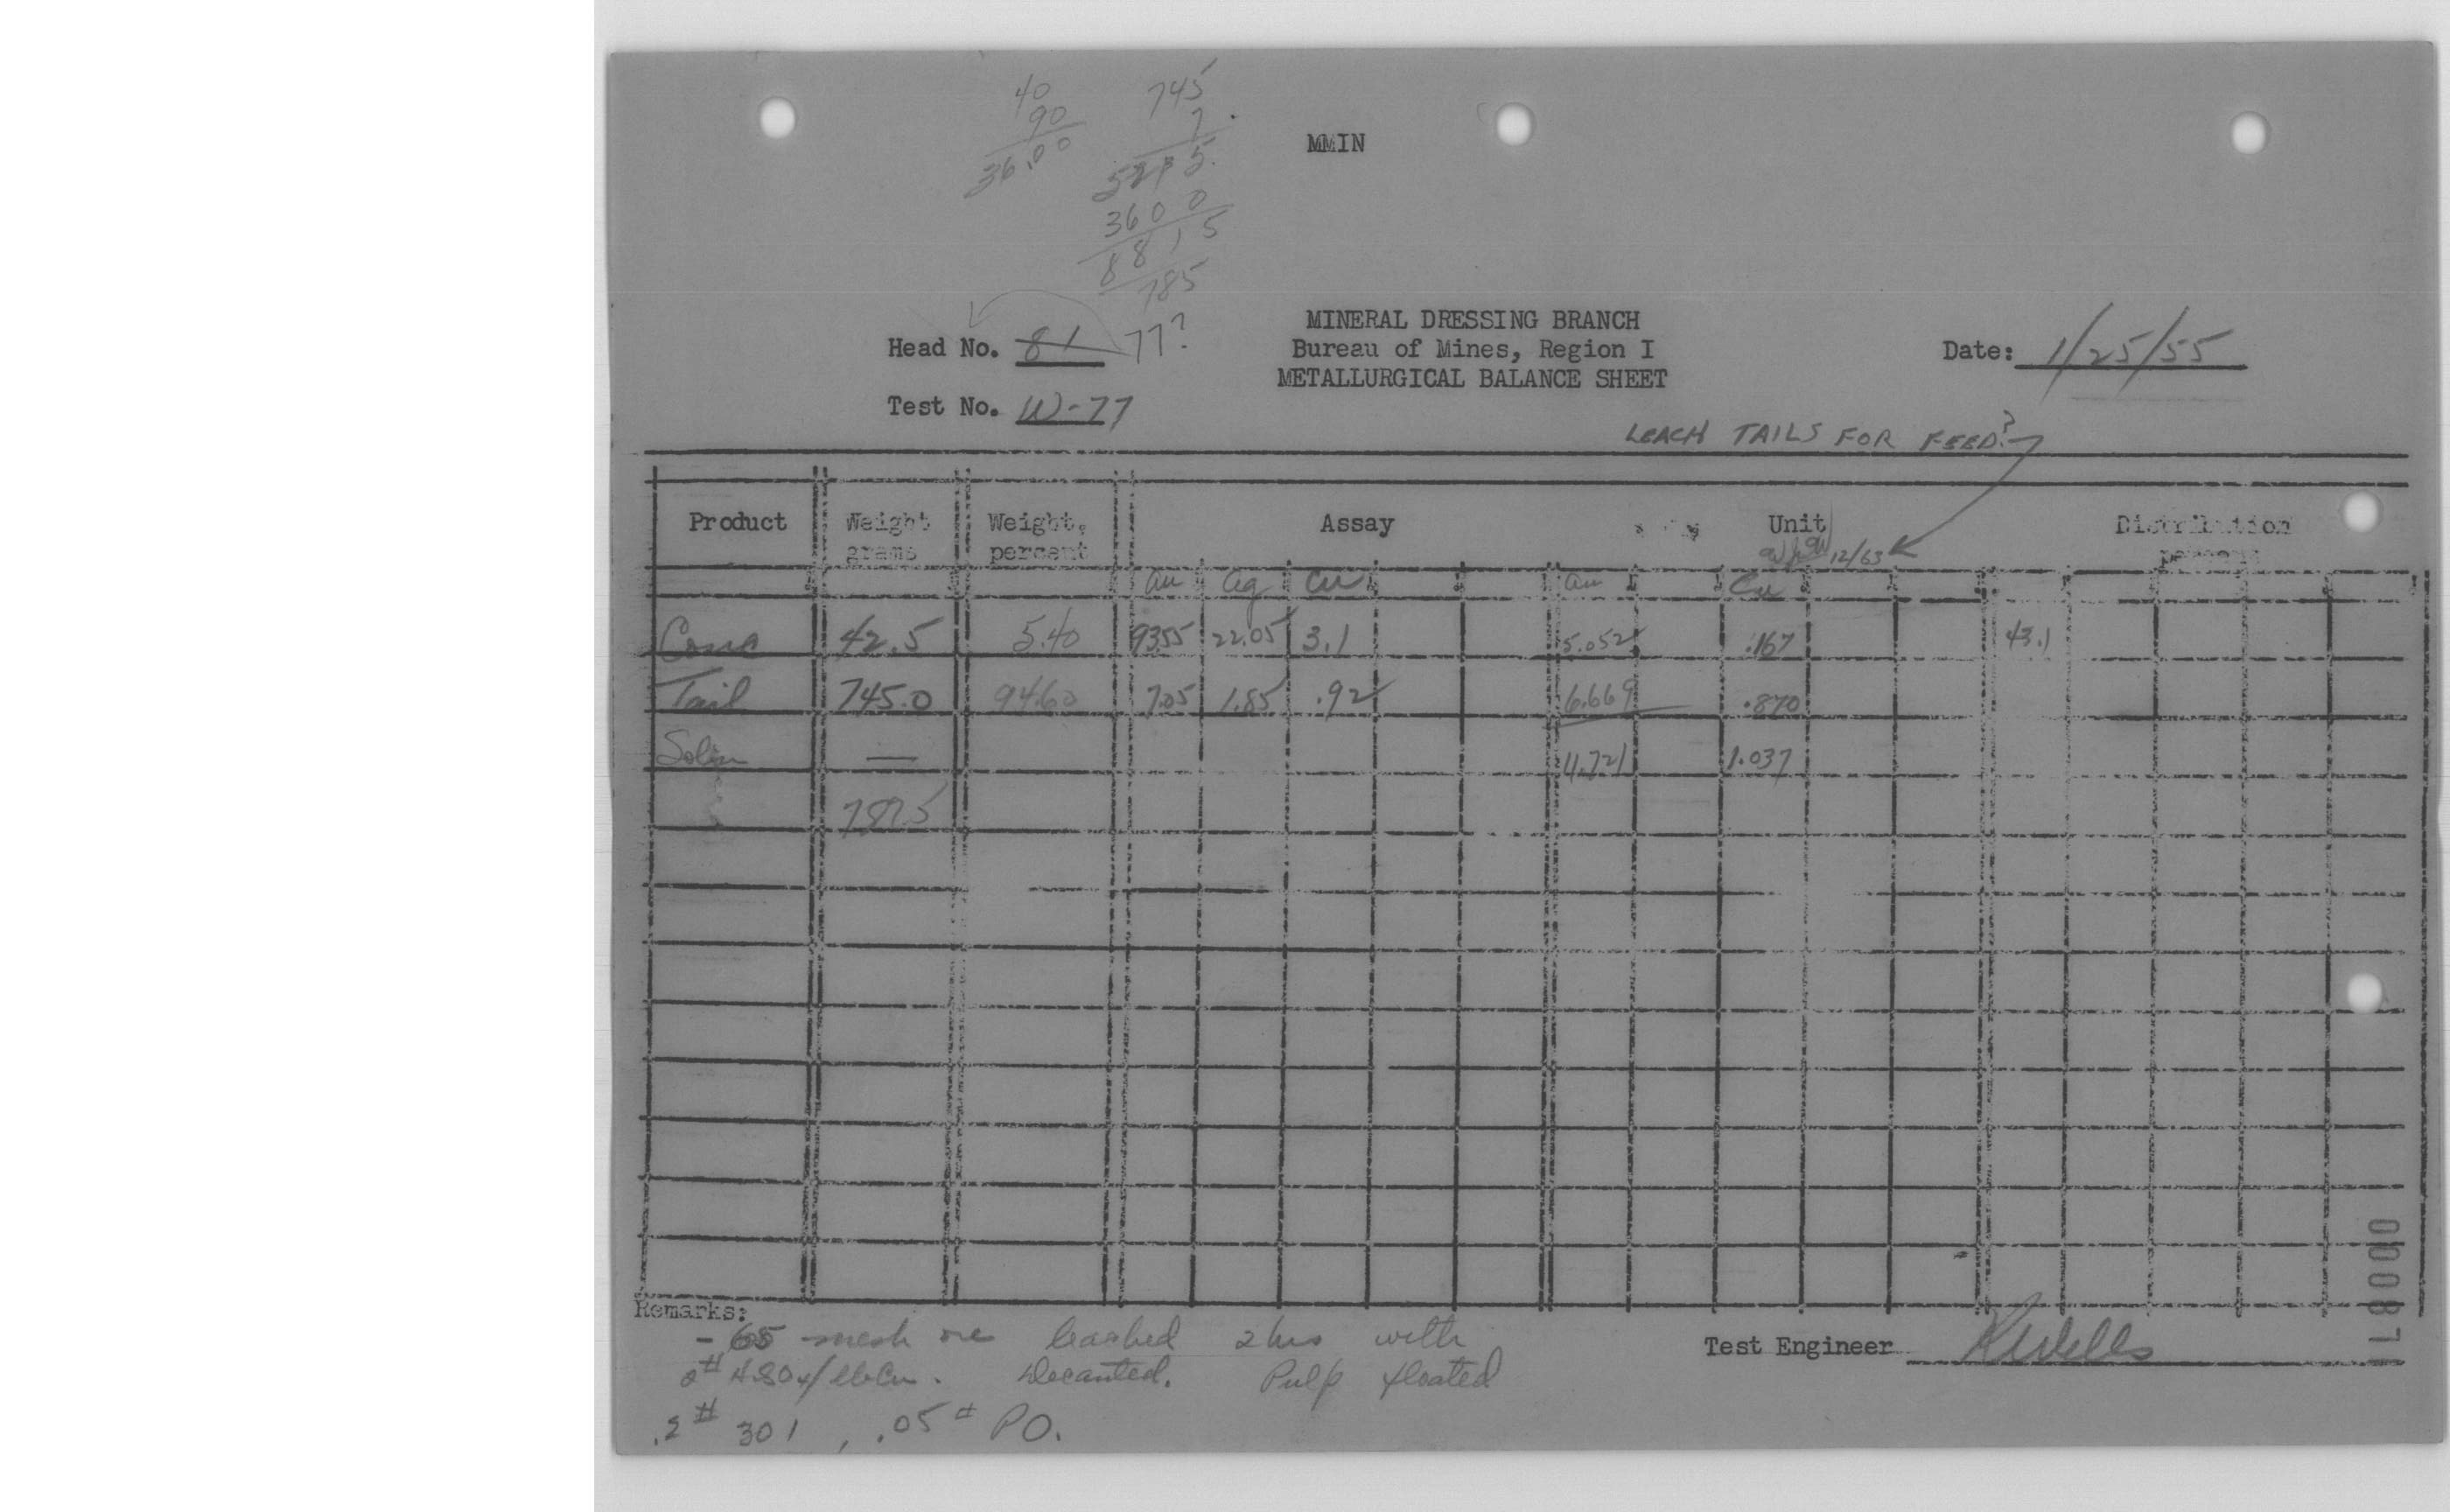 40
90
36.00
745
7
5215
3600
8815
785
MMIN
MINERAL DRESSING BRANCH
Head No. 81 77?
Bureau of Mines, Region I
Date: 1/25/55
METALLURGICAL BALANCE SHEET
Test No. W-77
LEACH TAILS FOR FEED?
Product Weight grams Weight, percent Assay Unit Distribution percent
12/63
Au Ag Cu Au Cu
Conc 42.5 5.40 93.55 22.05 3.1 5.052 .167 43.1
Tail 745.0 94.60 7.05 1.85 .92 6.669 .870
Soln — 11.721 1.037
787.5
Remarks:
- 65 mesh ore leached 2 hrs with
Test Engineer RWells
2# H2SO4/lb Cu. Decanted. Pulp floated
.2# 301, .05# PO.
000871